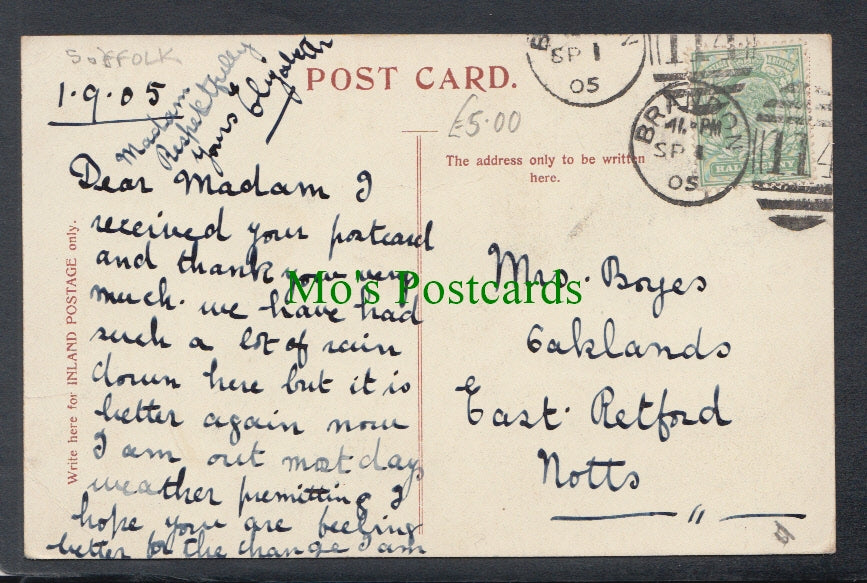 SUFFOLK
1.9.05
Madam
Respektfully
yours
Elizabeth
POST CARD.
£5.00
The address only to be written
here.
BRANDON
SP 1
05
114
BRANDON
PM
SP 1
05
114
Write here for INLAND POSTAGE only.
Dear Madam I
received your postcard
and thank you very
much. we have had
such a lot of rain
down here but it is
better again now
I am out most days
weather premitting I
hope your are feeling
better for the change I am
Mrs. Boyes
Oaklands
East. Retford
Notts
Mo's Postcards